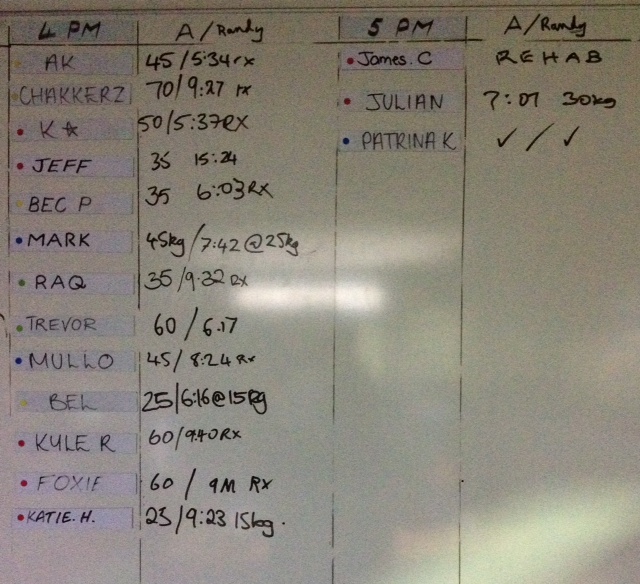 4 PM A/Randy 5 PM A/Randy
AK 45/5:34rx James. C REHAB
CHAKKERZ 70/9:27 rx JULIAN 7:07 30kg
K☆ 50/5:37RX PATRINA K ✓/✓
JEFF 35 15:24
BEC P 35 6:03 RX
MARK 45kg/7:42 @25kg
RAQ 35/9:32 RX
TREVOR 60/6.17
MULLO 45/8:24 Rx
BEL 25/6:16@15kg
KYLE R 60/9:40 RX
FOXIE 60/9M RX
KATIE. H. 25/9:23 15kg.